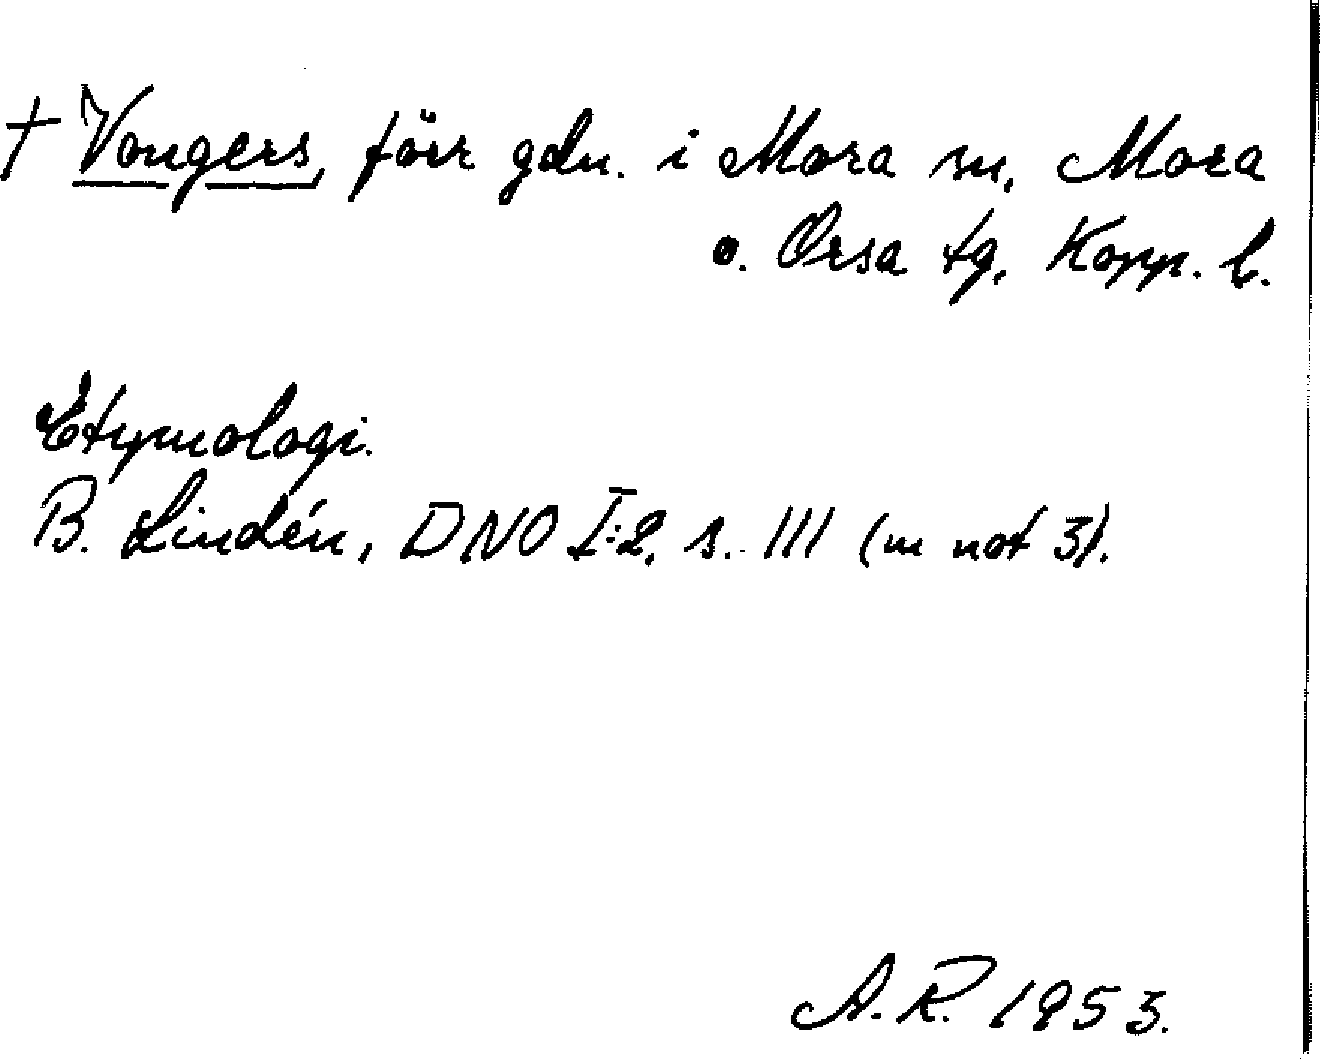 † Vongers, förr gdn. i Mora sn, Mora
o. Orsa tg, Kopp. l.
Etymologi.
B. Lindén, DNO I:2, s. 111 (m not 3).
A.R. 1953.